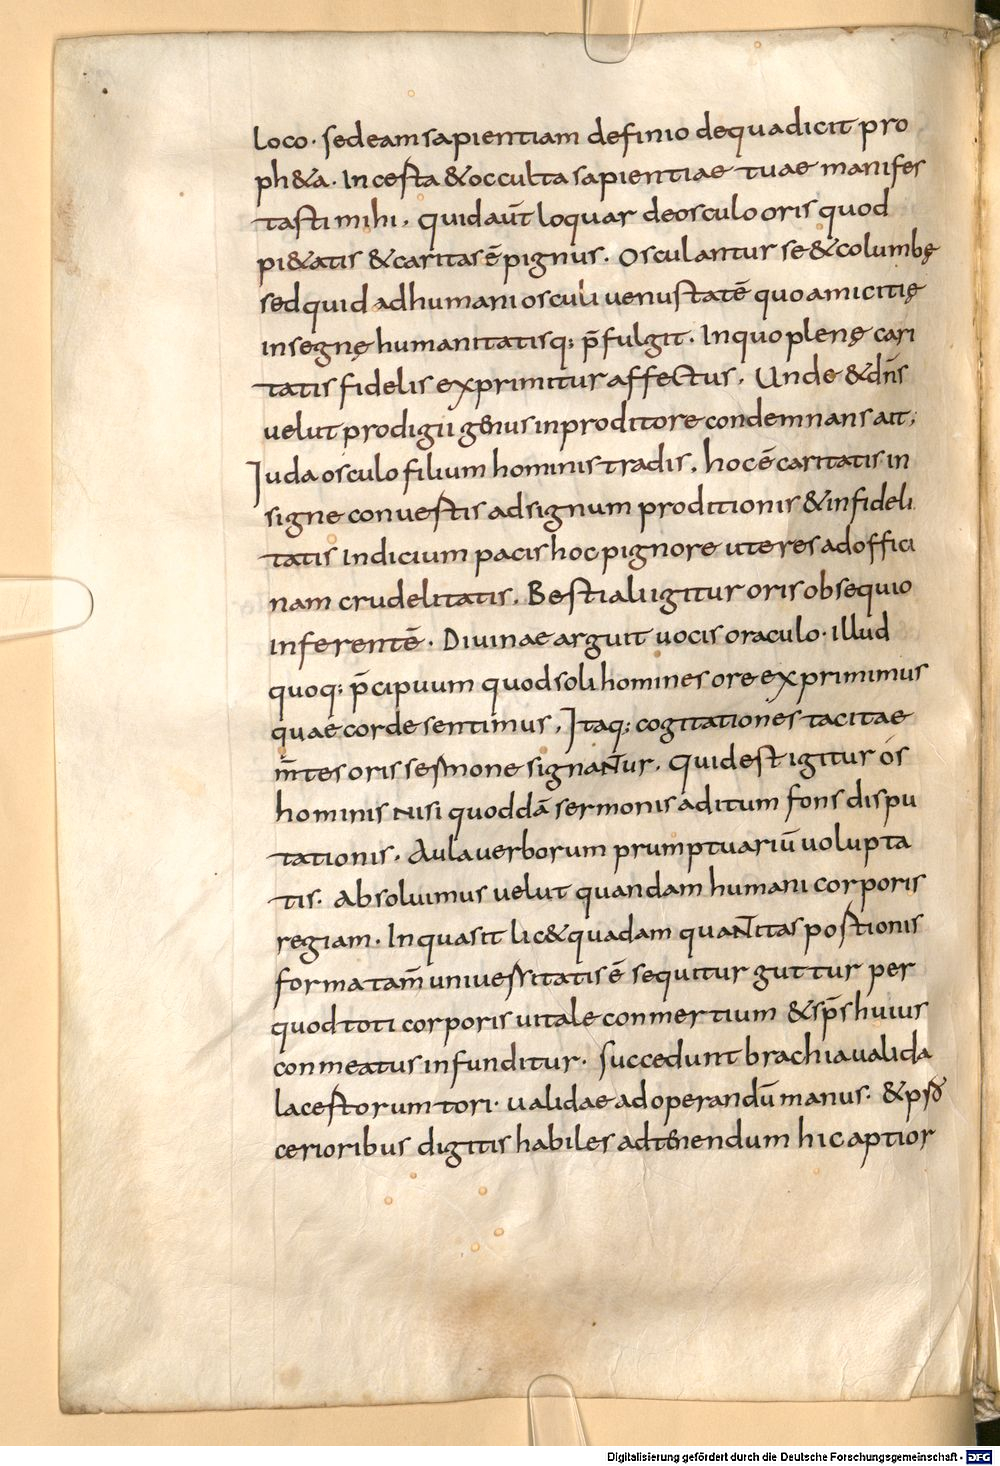 loco · sed eam sapientiam definio de qua dicit pro
ph&a · Incesta & occulta sapientiae tuae manifes
tasti mihi . quid aut̄ loquar de osculo oris quod
pi&atis & caritas ē pignus . Osculantur se & columbę
sed quid ad humani osculi uenustatē quo amicitię
insegnę humanitatisq; p̄fulgit . In quo plenę cari
tatis fidelis exprimitur affectus . Unde & dn̄s
uelut prodigii genus in proditore condemnans ait ;
Iuda osculo filium hominis tradis . hoc ē caritatis in
signe convestis ad signum proditionis & infideli
tatis indicium pacis hoc pignore uteres ad offici
nam crudelitatis . Bestiali igitur oris obsequio
inferentē . Divinae arguit vocis oraculo · illud
quoq; p̄cipuum quod soli homines ore exprimimus
quae corde sentimus . Itaq; cogitationes tacitae
m̄tes oris sermone signantur . Quid est igitur ós
hominis nisi quoddā sermonis aditum fons dispu
tationis . Aula verborum prumptuariū uolupta
tis . Absoluimus uelut quandam humani corporis
regiam . In qua sit lic& quadam quantitas postionis
forma tam̄ universitatis ē sequitur guttur per
quod toti corporis uitale conmertium & sp̄s huius
conmeatus infunditur . succedunt brachia ualida
lacestorum tori · ualidae ad operandū manus · & p
cerioribus digitis habiles ad tenendum hic aptior
Digitalisierung gefördert durch die Deutsche Forschungsgemeinschaft - DFG